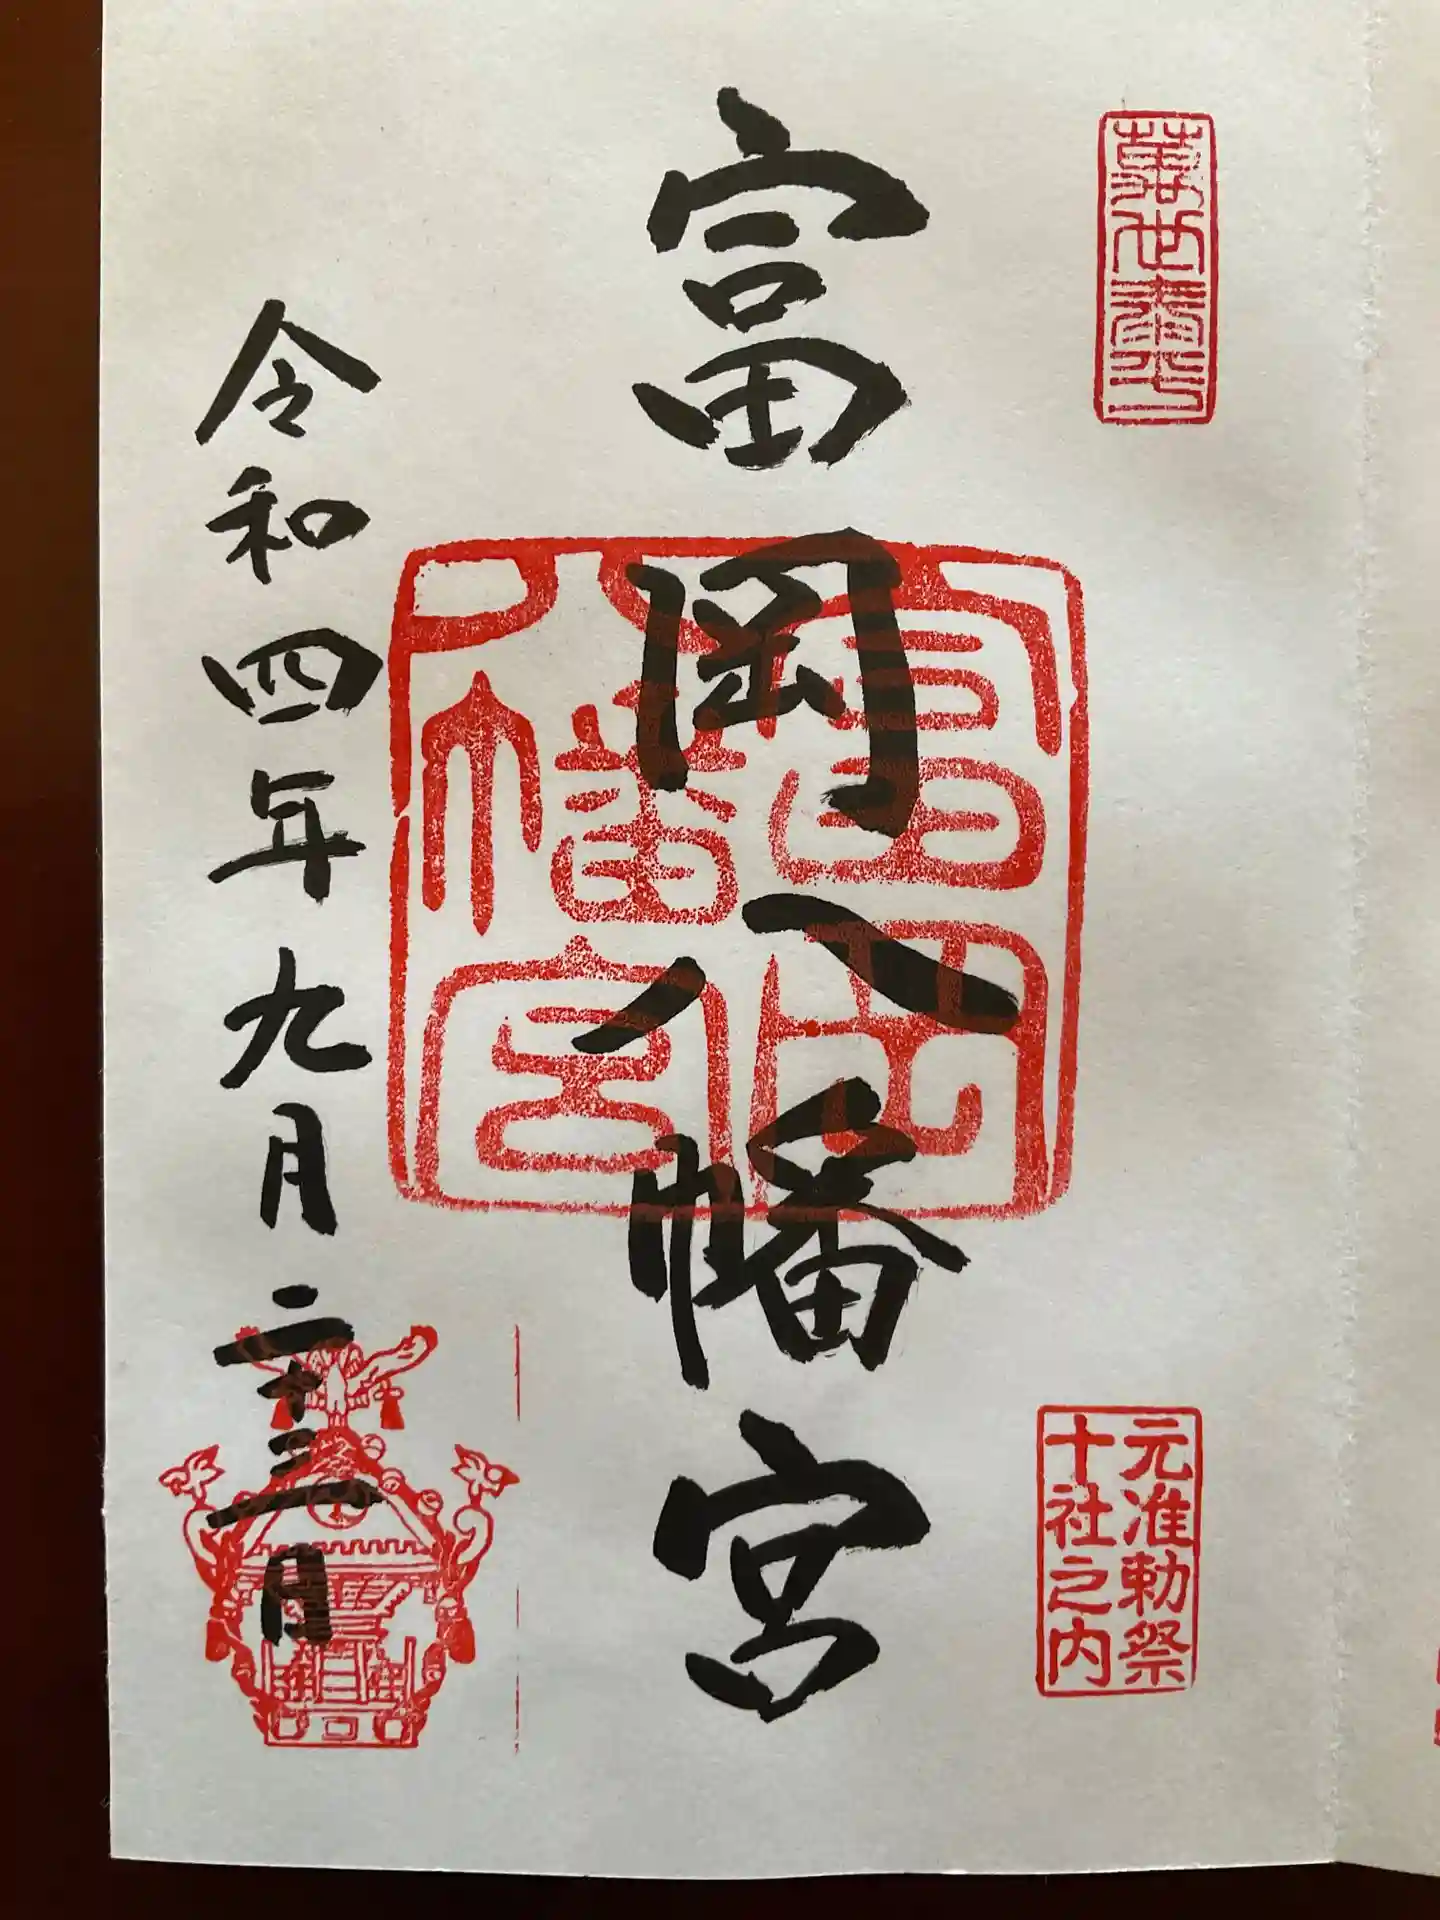 元准勅祭
十社之内
富岡八幡宮
富岡
八幡宮
令和四年九月二十三日